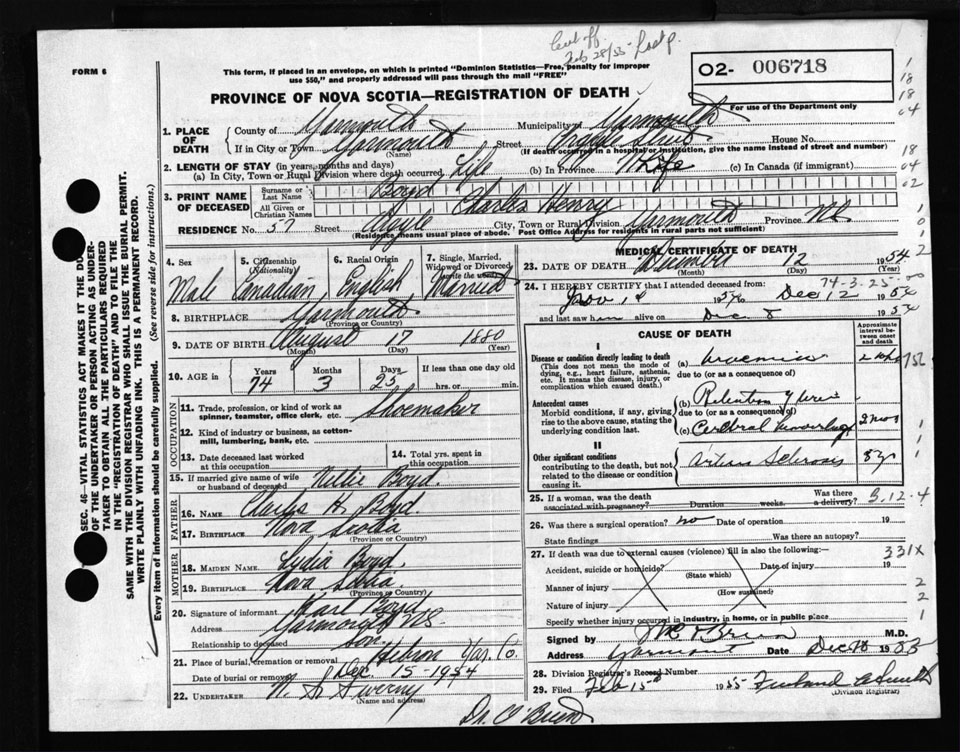 Cut off
Feb 28/55
FORM 6
This form, if placed in an envelope, on which is printed "Dominion Statistics—Free, penalty for improper
use $50," and properly addressed will pass through the mail "FREE"
02- 006718
PROVINCE OF NOVA SCOTIA—REGISTRATION OF DEATH
For use of the Department only
1. PLACE OF DEATH
County of Yarmouth Municipality of Yarmouth
If in City or Town Yarmouth Street Argyle Street House No.
(Name) (If death occurred in a hospital or institution, give the name instead of street and number)
2. LENGTH OF STAY (in years, months and days)
(a) In City, Town or Rural Division where death occurred Life (b) In Province Life (c) In Canada (if immigrant)
3. PRINT NAME OF DECEASED
Surname or Last Name Boyd
All Given or Christian Names Charles Henry
RESIDENCE No. 57 Street Argyle City, Town or Rural Division Yarmouth Province N.S.
(Residence means usual place of abode. Post Office Address for residents in rural parts not sufficient)
4. Sex Male
5. Citizenship (Nationality) Canadian
6. Racial Origin English
7. Single, Married, Widowed or Divorced (write the word) Married
8. BIRTHPLACE Yarmouth
(Province or Country)
9. DATE OF BIRTH August 17 1880
(Month) (Day) (Year)
10. AGE in Years Months Days If less than one day old
74 3 25 hrs. or min.
OCCUPATION
11. Trade, profession, or kind of work as spinner, teamster, office clerk, etc. Shoemaker
12. Kind of industry or business, as cotton-mill, lumbering, bank, etc.
13. Date deceased last worked at this occupation
14. Total yrs. spent in this occupation
15. If married give name of wife or husband of deceased Nellie Boyd
FATHER
16. Name Charles H. Boyd
17. BIRTHPLACE Nova Scotia
(Province or Country)
MOTHER
18. MAIDEN NAME Lydia Boyd
19. BIRTHPLACE Nova Scotia
(Province or Country)
20. Signature of informant Karl Boyd
Address Yarmouth N.S.
Relationship to deceased Son
21. Place of burial, cremation or removal Hebron Yar. Co.
Date of burial or removal Dec. 15-1954
22. UNDERTAKER Sweeny
(Name and address)
MEDICAL CERTIFICATE OF DEATH
23. DATE OF DEATH December 12 1954
(Month) (Day) (Year)
74-3-25
24. I HEREBY CERTIFY that I attended deceased from: Nov 1954 to Dec 12 1954
and last saw him alive on Dec 8 1954
CAUSE OF DEATH
Approximate interval between onset and death
I
Disease or condition directly leading to death
(This does not mean the mode of dying, e.g., heart failure, asthenia, etc. It means the disease, injury, or complication which caused death.)
(a) Uraemia
due to (or as a consequence of)
Antecedent causes
Morbid conditions, if any, giving rise to the above cause, stating the underlying condition last.
(b) Retention of Urine
due to (or as a consequence of)
(c) Cerebral Hemorrhage 2 mos
II
Other significant conditions
contributing to the death, but not related to the disease or condition causing it.
Arterio Sclerosis
25. If a woman, was the death associated with pregnancy? Duration weeks. Was there a delivery?
3.12.4
26. Was there a surgical operation? no Date of operation 19
State findings Was there an autopsy?
27. If death was due to external causes (violence) fill in also the following:
331X
Accident, suicide or homicide? Date of injury 19
(State which)
Manner of injury
(How sustained)
Nature of injury
Specify whether injury occurred in industry, in home, or in public place
Signed by O'Brien M.D.
Address Yarmouth Date Dec
28. Division Registrar's Record Number
29. Filed Feb 15th 1955
(Division Registrar)
Dr. O'Brien
SEC. 46—VITAL STATISTICS ACT MAKES IT THE DU
OF THE UNDERTAKER OR PERSON ACTING AS UNDER-
TAKER TO OBTAIN ALL THE PARTICULARS REQUIRED
IN THE "REGISTRATION OF DEATH" AND TO FILE THE
SAME WITH THE DIVISION REGISTRAR WHO SHALL ISSUE THE BURIAL PERMIT.
WRITE PLAINLY WITH UNFADING INK. THIS IS A PERMANENT RECORD.
Every item of information should be carefully supplied. (See reverse side for instructions.)